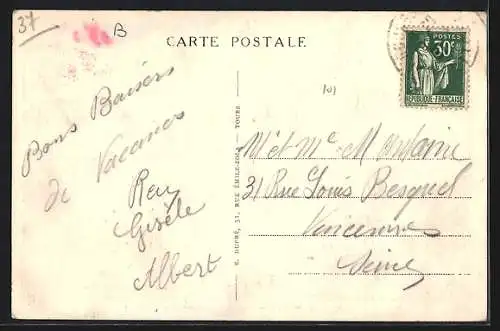 37
B
CARTE POSTALE
101
POSTES
30c
RÉPUBLIQUE-FRANÇAISE
Bons Baisers
de Vacances
Gisèle
Albert
G. DUPRÉ, 31, RUE ÉMILE-ZOLA - TOURS
Mr et Me M
31 Rue Louis Besquel
Vincennes
Seine